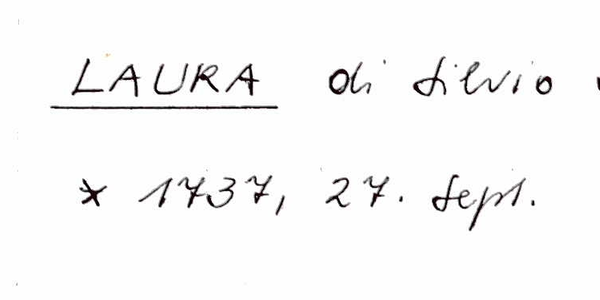 LAURA di Silvio
* 1737, 27. Sept.